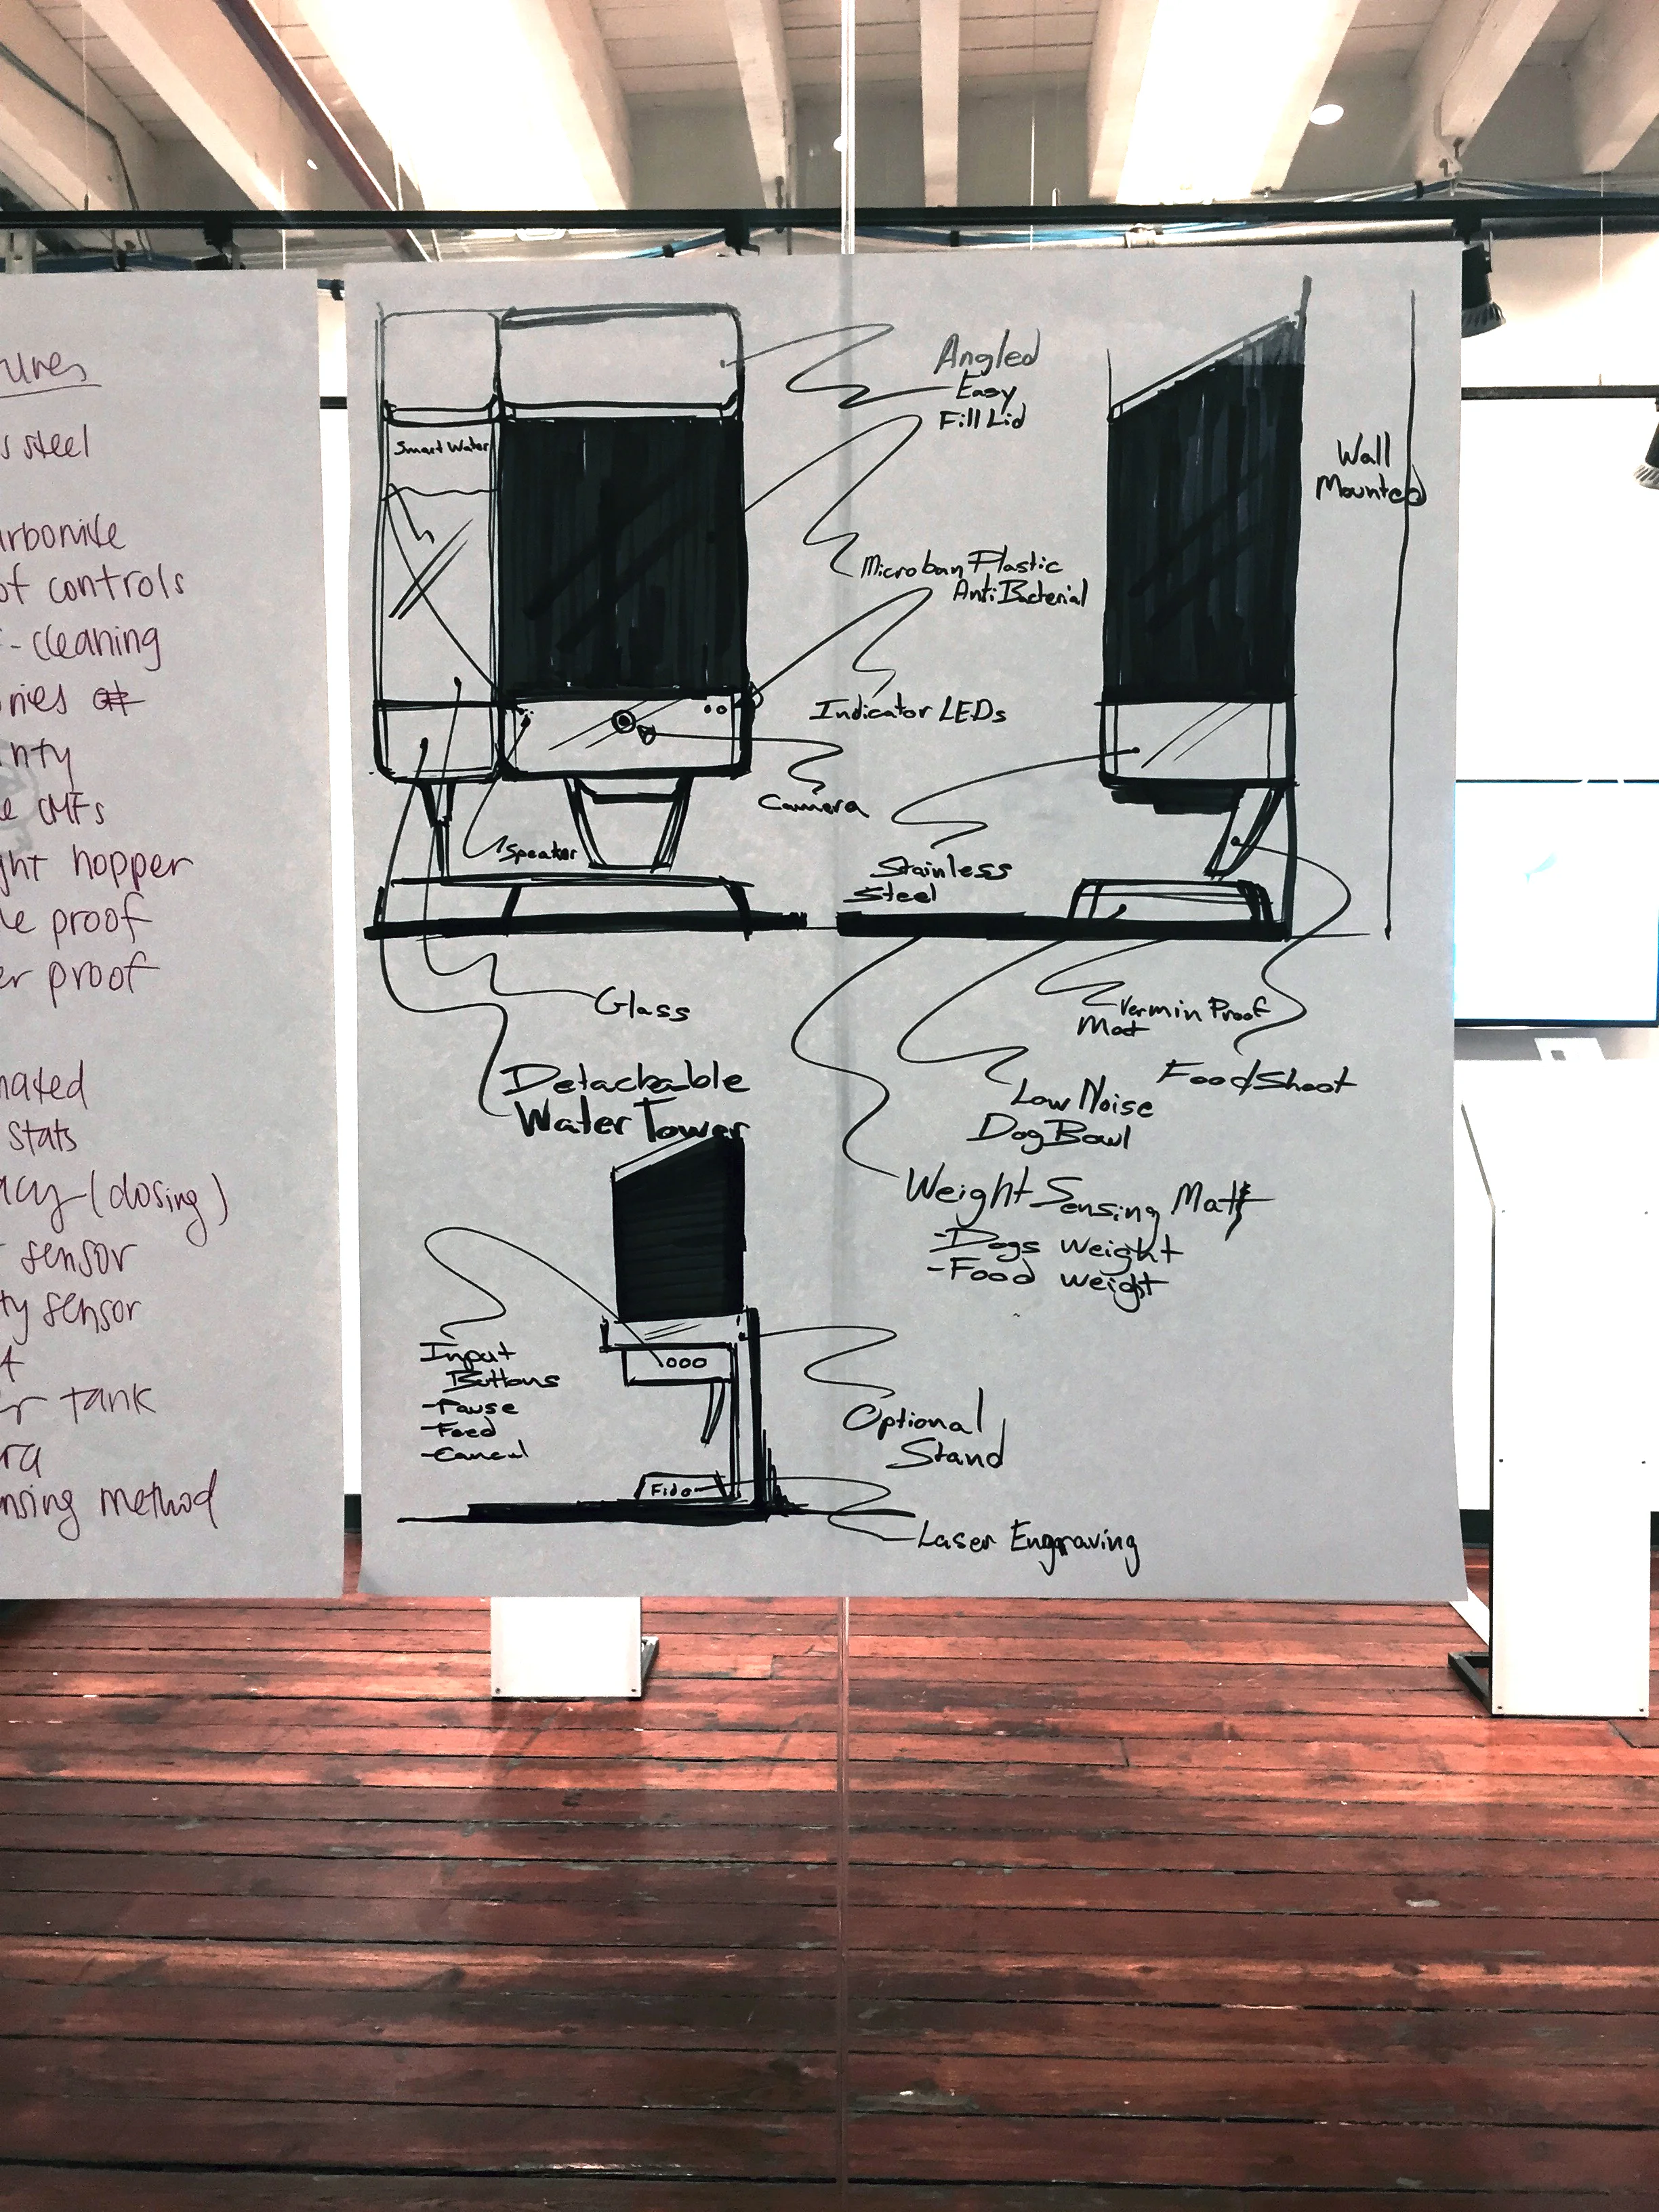 s steel
of controls
-cleaning
nty
CMFs
ght hopper
le proof
er proof
nated
stats
acy (dosing)
sensor
ty sensor
er tank
ra
nsing method
Angled
Easy
Fill Lid
Smart Water
Wall
Mounted
Microban Plastic
AntiBacterial
Indicator LEDs
Camera
Speaker
Stainless
Steel
Glass
Vermin Proof
Mat
Food Shoot
Detachable
Water Tower
Low Noise
Dog Bowl
Weight Sensing Matt
-Dogs weight
-Food weight
Input
Buttons
-Pause
-Feed
-Cancel
Optional
Stand
Fido
Laser Engraving